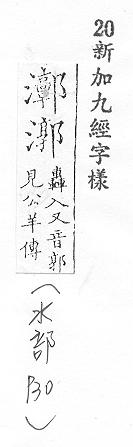 20新加九經字樣
漷
轟入又音郭
見公羊傳
（水部P30）